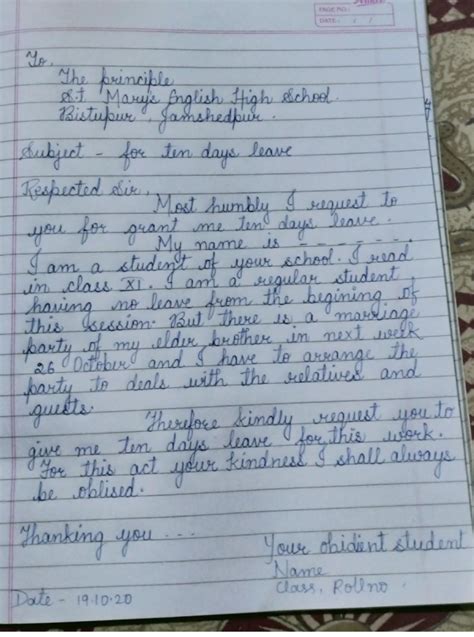 PAGE NO.:
DATE: / /
To,
The principle
St. Mary's English High School.
Bistupur, Jamshedpur.
Subject - for ten days leave
Respected Sir,
Most humbly I request to
you for grant me ten days leave.
My name is _ _ _ _ _ _ _.
I am a student of your school. I read
in class XI. I am a regular student
having no leave from the begining of
this session. But there is a marriage
party of my elder brother in next week
26 October and I have to arrange the
party to deals with the relatives and
guests.
Therefore kindly request you to
give me ten days leave for this work.
For this act your kindness I shall always
be oblised.
Thanking you ...
Your obidient student
Name
Class, Rollno.
Date - 19.10.20